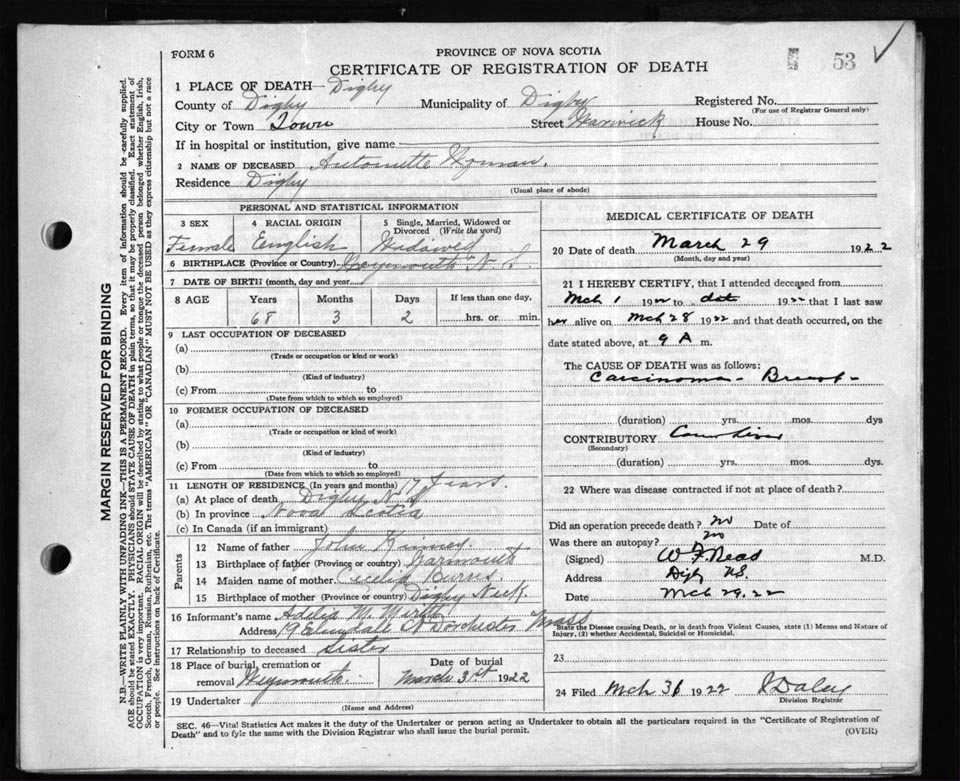 FORM 6
PROVINCE OF NOVA SCOTIA
53
CERTIFICATE OF REGISTRATION OF DEATH
1 PLACE OF DEATH— Digby
County of Digby Municipality of Digby Registered No.
(For use of Registrar General only)
City or Town Town Street Warwick House No.
If in hospital or institution, give name
2 NAME OF DECEASED Antoinette Wyman.
Residence Digby
(Usual place of abode)
PERSONAL AND STATISTICAL INFORMATION
3 SEX 4 RACIAL ORIGIN 5 Single, Married, Widowed or Divorced (Write the word)
Female English Widowed
6 BIRTHPLACE (Province or Country) Weymouth N. S.
7 DATE OF BIRTH (month, day and year)
8 AGE Years Months Days If less than one day,
68 3 2 hrs. or min.
9 LAST OCCUPATION OF DECEASED
(a)
(Trade or occupation or kind or work)
(b)
(Kind of industry)
(c) From to
(Date from which to which so employed)
10 FORMER OCCUPATION OF DECEASED
(a)
(Trade or occupation or kind of work)
(b)
(Kind of industry)
(c) From to
(Date from which to which so employed)
11 LENGTH OF RESIDENCE (In years and months) 17 Years.
(a) At place of death Digby N. S.
(b) In province Nova Scotia
(c) In Canada (if an immigrant)
Parents
12 Name of father John Kinney.
13 Birthplace of father (Province or Country) Yarmouth
14 Maiden name of mother Cecelia Burns.
15 Birthplace of mother (Province or country) Digby Neck.
16 Informant's name Adelia M.
Address Dorchester Mass
17 Relationship to deceased Sister
18 Place of burial, cremation or removal Weymouth. Date of burial March 31st 1922
19 Undertaker
(Name and Address)
MEDICAL CERTIFICATE OF DEATH
20 Date of death March 29 1922
(Month, day and year)
21 I HEREBY CERTIFY, that I attended deceased from
Mch 1 1922 to date 1922 that I last saw
her alive on Mch 28 1922 and that death occurred, on the
date stated above, at 9 A m.
The CAUSE OF DEATH was as follows:
Carcinoma - Breast -
(duration) yrs. mos. dys
CONTRIBUTORY
(Secondary)
(duration) yrs. mos. dys.
22 Where was disease contracted if not at place of death?
Did an operation precede death? no Date of
Was there an autopsy? no
(Signed) W. F. Read M.D.
Address Digby N.S.
Date Mch 29.22
State the Disease causing Death, or in death from Violent Causes, state (1) Means and Nature of Injury, (2) whether Accidental, Suicidal or Homicidal.
23
24 Filed Mch 31 1922 Daley
Division Registrar
SEC. 46—Vital Statistics Act makes it the duty of the Undertaker or person acting as Undertaker to obtain all the particulars required in the "Certificate of Registration of
Death" and to fyle the same with the Division Registrar who shall issue the burial permit.
(OVER)
MARGIN RESERVED FOR BINDING
N.B.—WRITE PLAINLY WITH UNFADING INK—THIS IS A PERMANENT RECORD. Every item of information should be carefully supplied.
AGE should be stated EXACTLY. PHYSICIANS should STATE CAUSE OF DEATH in plain terms, so that it may be properly classified. Exact statement of
OCCUPATION is very important. RACIAL ORIGIN will be described by stating to what people or tongue the deceased person belonged whether English, Irish,
Scotch, French, German, Russian, Ruthenian, etc. The terms "AMERICAN" OR "CANADIAN" MUST NOT BE USED as they express citizenship but not a race
or people. See instructions on back of Certificate.